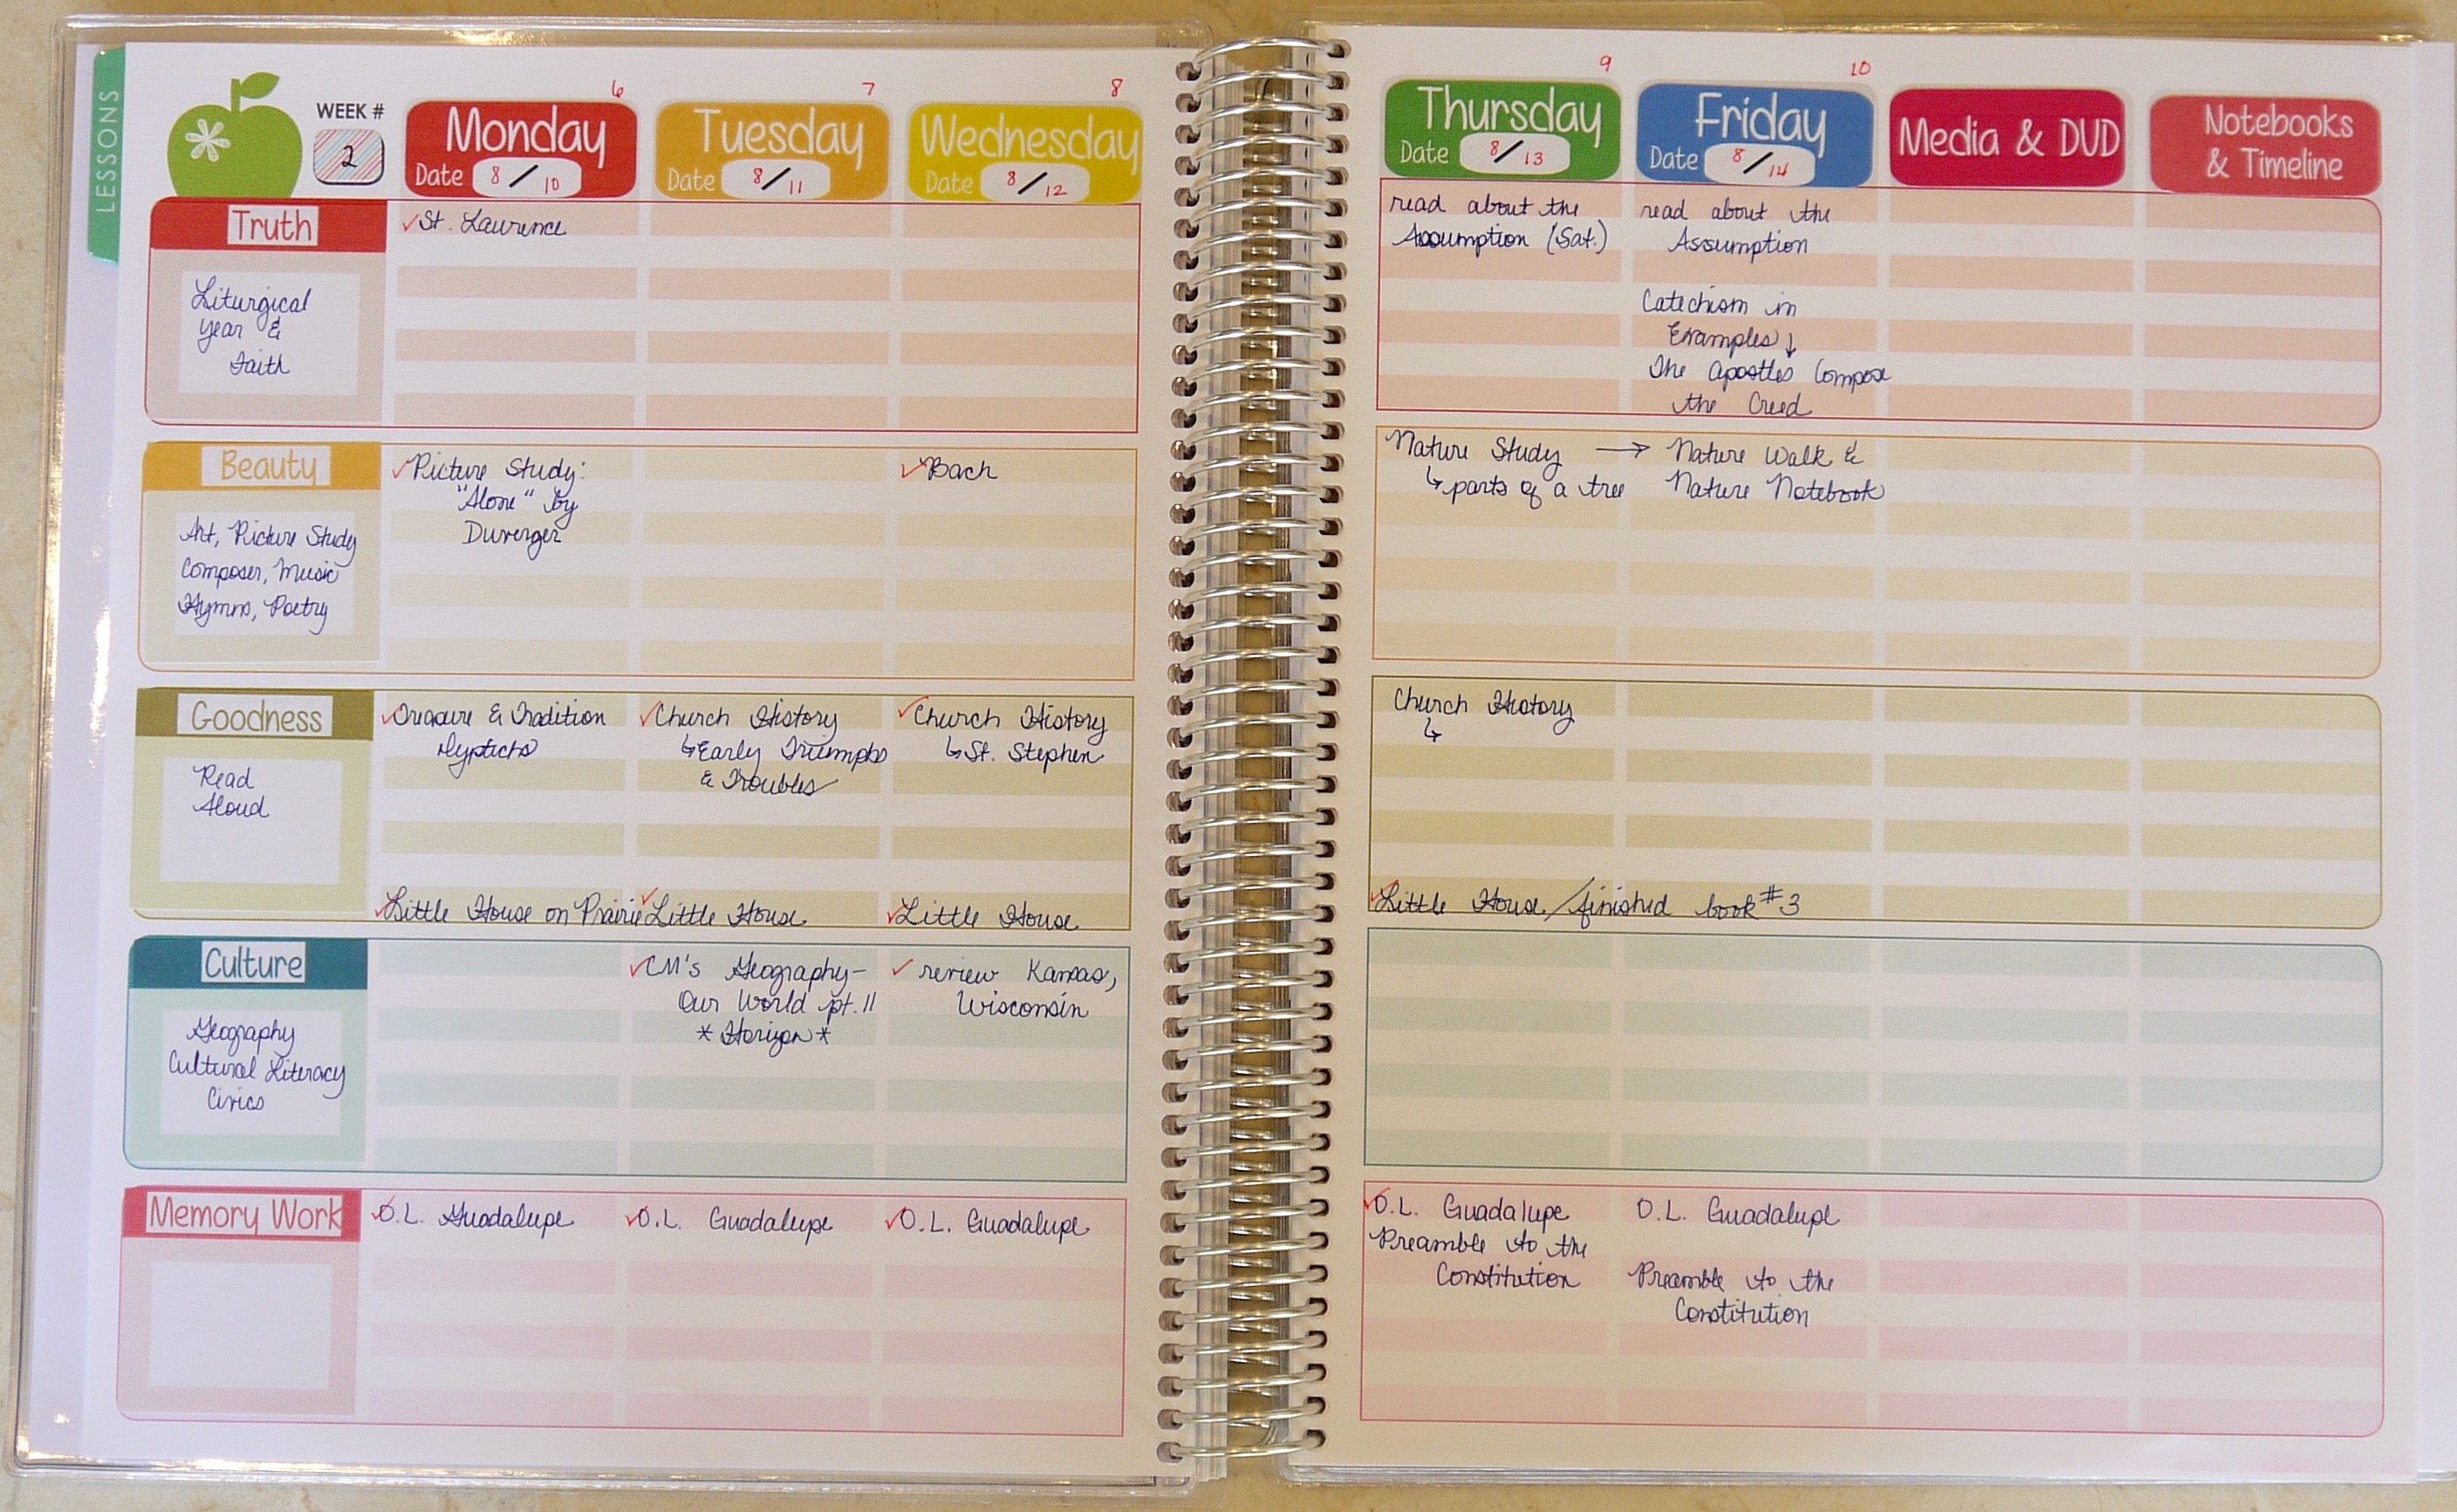 LESSONS
WEEK #
2
6
Monday
Date 8/10
7
Tuesday
Date 8/11
8
Wednesday
Date 8/12
9
Thursday
Date 8/13
10
Friday
Date 8/14
Media & DVD
Notebooks
& Timeline
Truth
Liturgical
Year &
Faith
✓St. Laurence
read about the
Assumption (Sat.)
read about the
Assumption
Catechism in
Examples ↓
The Apostles Compose
the Creed
Beauty
Art, Picture Study
Composer, Music
Hymns, Poetry
✓Picture Study:
"Alone" by
Duverger
✓Bach
Nature Study →
↳parts of a tree
Nature Walk &
Nature Notebook
Goodness
Read
Aloud
✓Treasure & Tradition
Dyptichs
✓Little House on Prairie
✓Church History
↳Early Triumphs
& Troubles
✓Little House
✓Church History
↳St. Stephen
✓Little House
Church History
↳
✓Little House/finished book #3
Culture
Geography
Cultural Literacy
Civics
✓CM's Geography-
Our World pt. 11
*Horizon*
✓review Kansas,
Wisconsin
Memory Work
✓O.L. Guadalupe
✓O.L. Guadalupe
✓O.L. Guadalupe
✓O.L. Guadalupe
Preamble to the
Constitution
O.L. Guadalupe
Preamble to the
Constitution